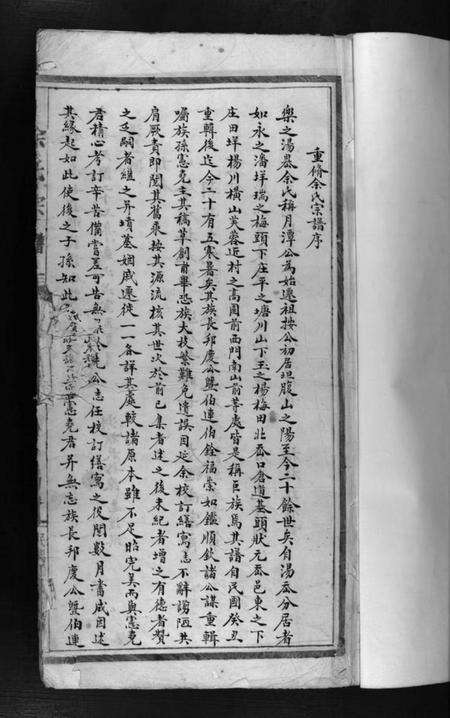 重脩余氏宗譜序
樂之湯岙余氏稱月潭公為始遷祖按公初居坦腹山之陽至今二十餘世矣自湯岙分居者
如永之潘垟瑞之梅頭下庄平之塘川山下玉之楊梅田北岙口倉道基頭狀元岙邑東之下
庄田垟楊川橫山芙蓉近村之高園前西門南山前等處皆是稱巨族焉其譜自民國癸丑
重輯後迄今二十有五寒暑矣其族長邦慶公暨伯連伯銓福崇如鑑順欽諸公謀重輯
囑族孫憲克主其稿草創甫畢恐族大枝繁難免遺誤因延余校訂繕寫志不辭謭陋共
肩厥責即閱其舊乘按其源流核其世次於前已集者述之後未紀者增之有德者贊
之乏嗣者繼之并墳墓姻戚遷徙一一各詳其處較諸原本雖不足昭完美而與憲克
君積心考訂辛苦備嘗差可告無公志任校訂繕寫之役閱數月書成因述
其緣起如此使後之子孫知此憲克君并無忘族長邦慶公暨伯連